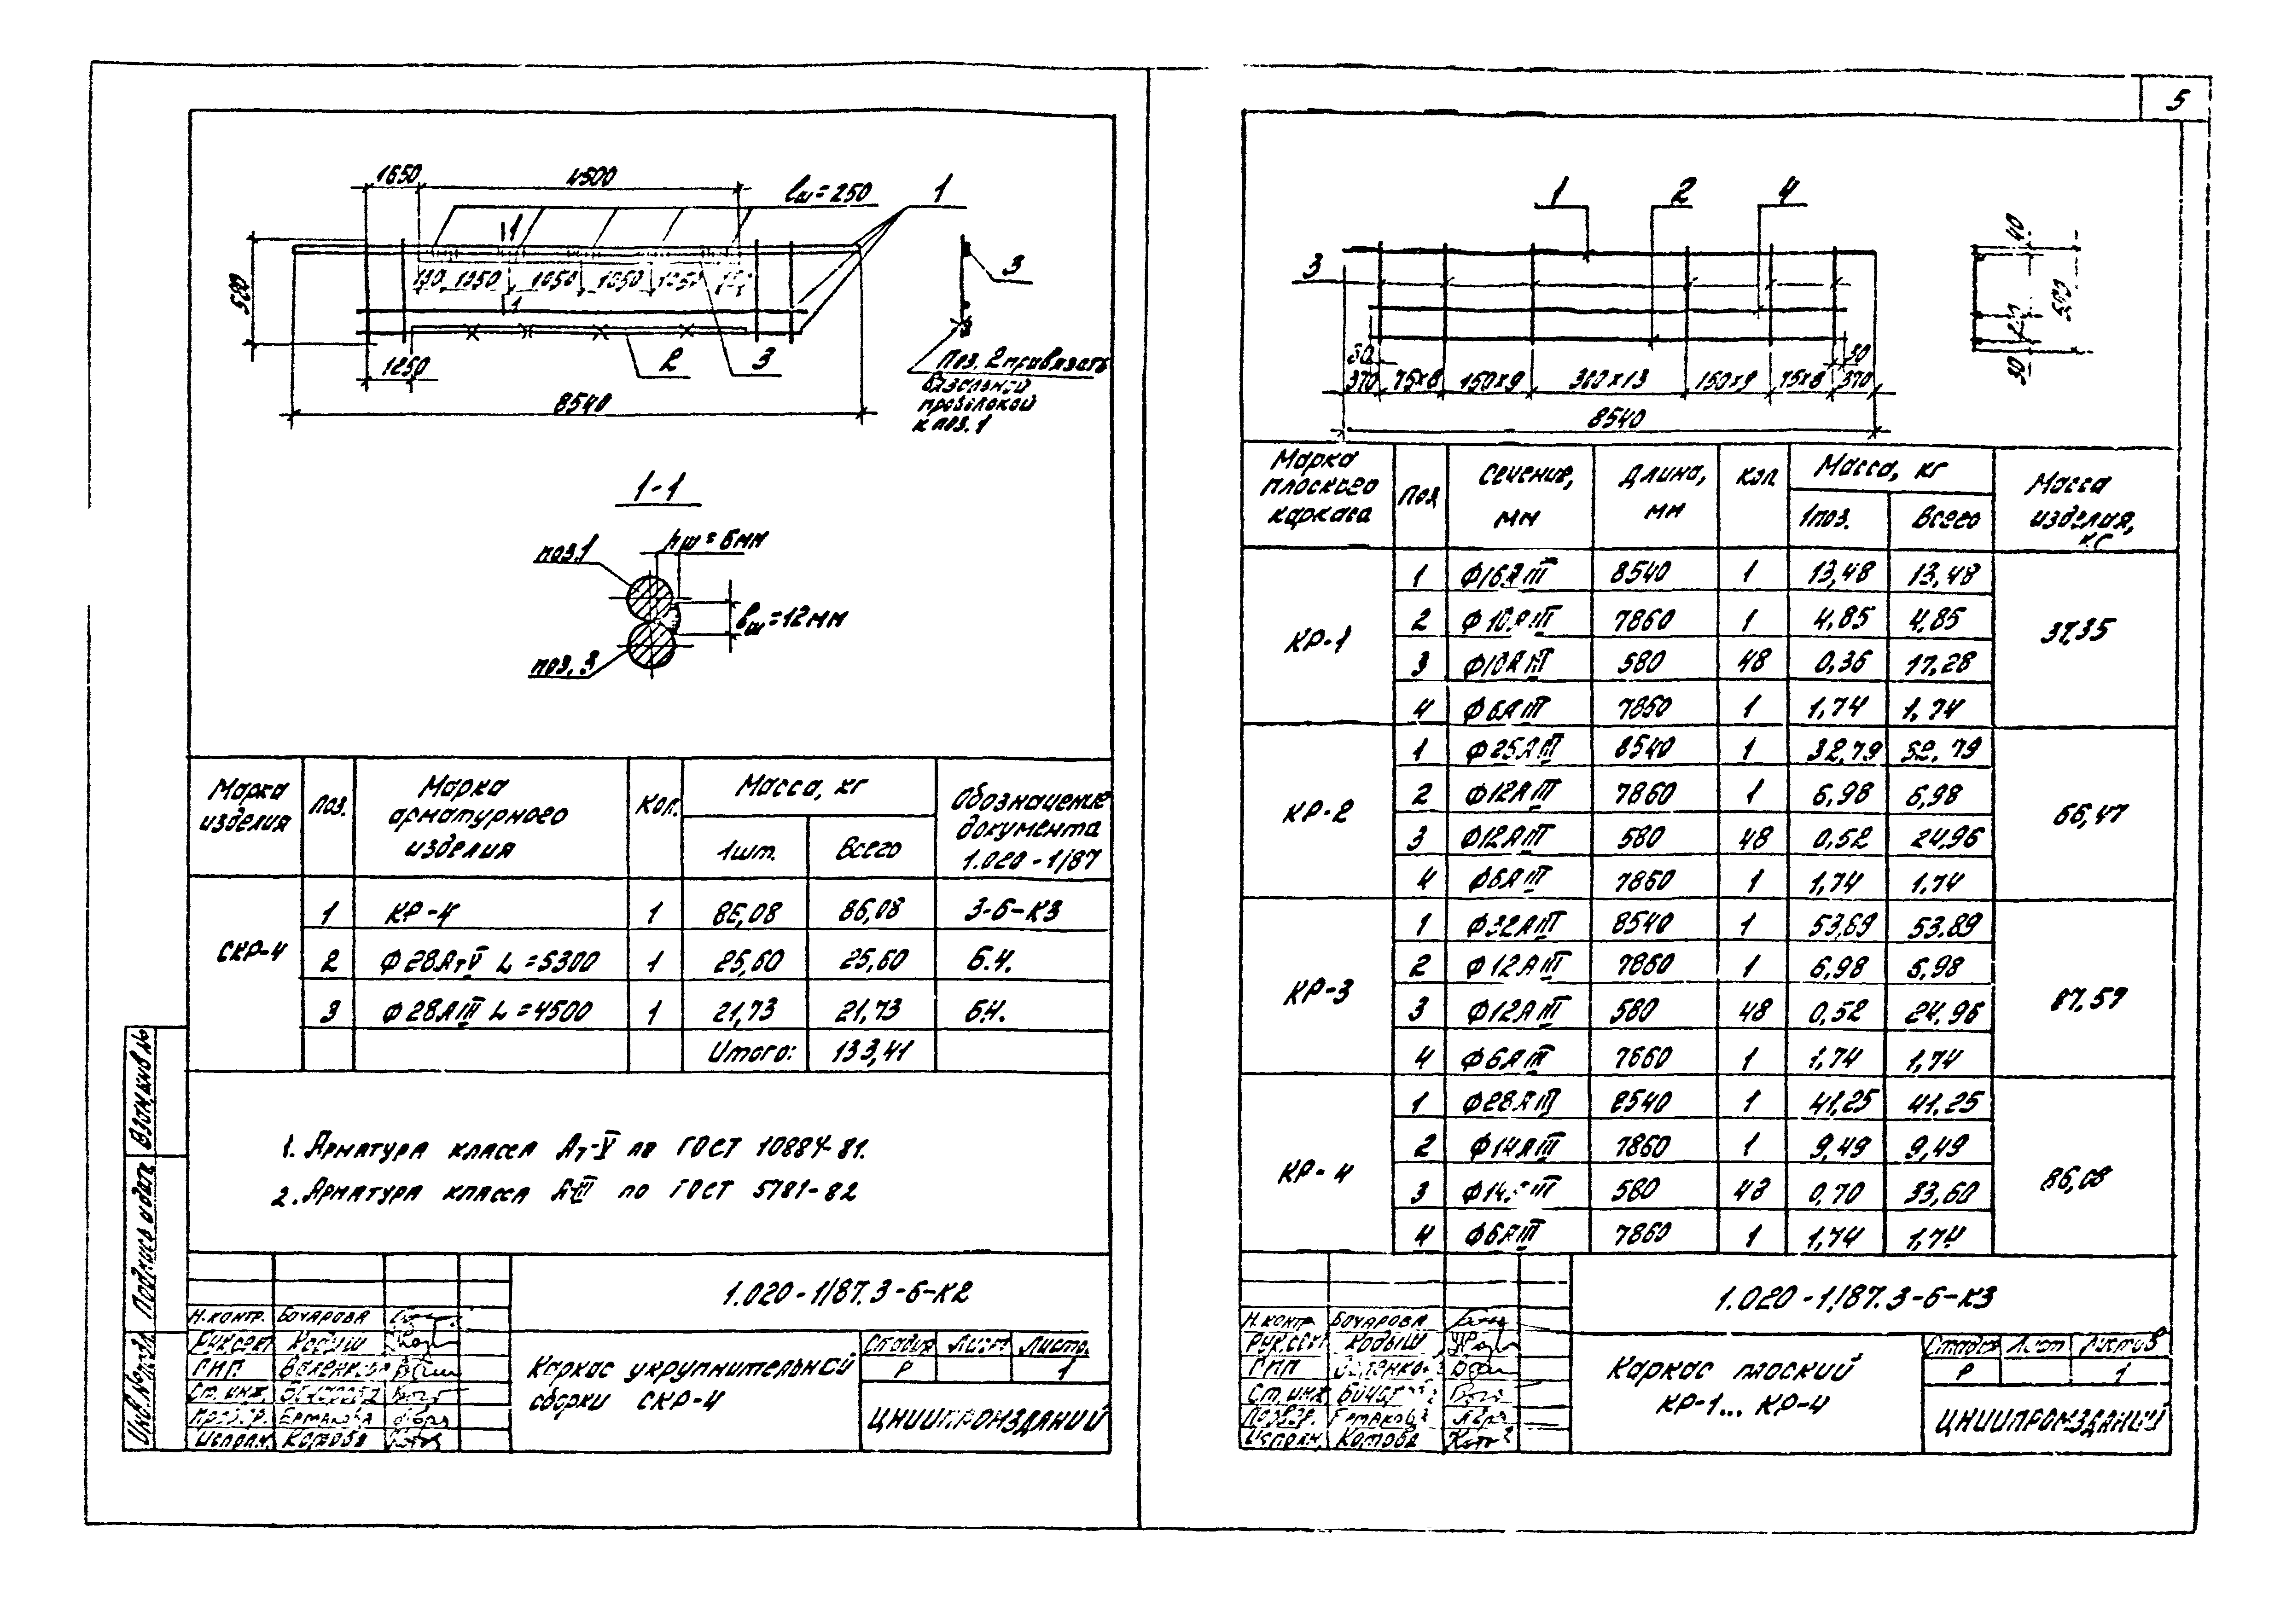 5
1650
4500
ℓш=250
1
580
1050
1050
1050
1050
1
1
3
1250
2
3
8540
Поз. 2 привязать
вязальной
проволокой
к поз. 1
1-1
поз.1
hш=6мм
вш=12мм
поз. 3
Марка изделия
Поз.
Марка арматурного изделия
Кол.
Масса, кг
Обозначение документа 1.020-1/87
1шт.
Всего
СКР-4
1 КР-4 1 86,08 86,08 3-6-К3
2 Ф28АтV L=5300 1 25,60 25,60 б.ч.
3 Ф28АIII L=4500 1 21,73 21,73 б.ч.
Итого: 133,41
1. Арматура класса Ат-V по ГОСТ 10884-81.
2. Арматура класса А-III по ГОСТ 5781-82
Взам. инв.№
Подпись и дата
Инв.№подл.
1.020-1/87.3-6-К2
Н.контр. Бочарова
Рук.сект Кодыш
ГИП
Ст. инж
Провер. Ермакова
Исполн. Котова
Каркас укрупнительной
сборки СКР-4
Стадия Лист Листов
Р 1
ЦНИИПРОМЗДАНИЙ
1
2
4
3
40
30
50
370 75х8 150х9 300х13 150х9 75х8 370
8540
Марка плоского каркаса
Поз
Сечение, мм
Длина, мм
Кол
Масса, кг
Масса изделия, кг
1поз.
Всего
КР-1
1 Ф16АIII 8540 1 13,48 13,48
2 Ф10АIII 7860 1 4,85 4,85
3 Ф10АIII 580 48 0,36 17,28
4 Ф6АIII 7860 1 1,74 1,74
37,35
КР-2
1 Ф25АIII 8540 1 32,79 32,79
2 Ф12АIII 7860 1 6,98 6,98
3 Ф12АIII 580 48 0,52 24,96
4 Ф6АIII 7860 1 1,74 1,74
66,47
КР-3
1 Ф32АIII 8540 1 53,89 53.89
2 Ф12АIII 7860 1 6,98 6,98
3 Ф12АIII 580 48 0,52 24,96
4 Ф6АIII 7860 1 1,74 1,74
87,59
КР-4
1 Ф28АIII 8540 1 41,25 41,25
2 Ф14АIII 7860 1 9,49 9,49
3 Ф14АIII 580 48 0,70 33,60
4 Ф6АIII 7860 1 1,74 1,74
86,08
1.020-1/87.3-6-К3
Н.контр Бочарова
Рук.сект Кодыш
ГИП
Ст. инж
Провер. Ермакова
Исполн. Котова
Каркас плоский
КР-1... КР-4
Стадия Лист Листов
Р 1
ЦНИИПРОМЗДАНИЙ